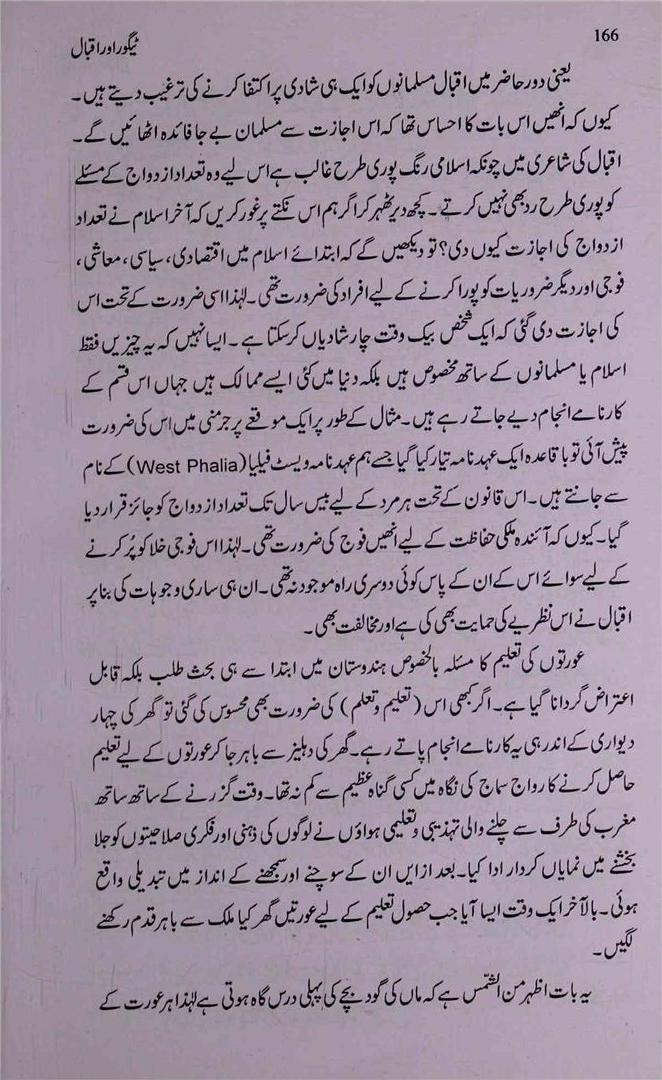 166
ٹیگور اور اقبال
یعنی دور حاضر میں اقبال مسلمانوں کو ایک ہی شادی پر اکتفا کرنے کی ترغیب دیتے ہیں۔
کیوں کہ انھیں اس بات کا احساس تھا کہ اس اجازت سے مسلمان بے جا فائدہ اٹھائیں گے۔
اقبال کی شاعری میں چونکہ اسلامی رنگ پوری طرح غالب ہے اس لیے وہ تعداد ازدواج کے مسئلے
کو پوری طرح رد بھی نہیں کرتے۔ کچھ دیر ٹھہر کر اگر ہم اس نکتے پر غور کریں کہ آخر اسلام نے تعداد
ازدواج کی اجازت کیوں دی؟ تو دیکھیں گے کہ ابتدائے اسلام میں اقتصادی، سیاسی، معاشی،
فوجی اور دیگر ضروریات کو پورا کرنے کے لیے افراد کی ضرورت تھی۔ لہٰذا اسی ضرورت کے تحت اس
کی اجازت دی گئی کہ ایک شخص بیک وقت چار شادیاں کر سکتا ہے۔ ایسا نہیں کہ یہ چیزیں فقط
اسلام یا مسلمانوں کے ساتھ مخصوص ہیں بلکہ دنیا میں کئی ایسے ممالک ہیں جہاں اس قسم کے
کارنامے انجام دیے جاتے رہے ہیں۔ مثال کے طور پر ایک موقعے پر جرمنی میں اس کی ضرورت
پیش آئی تو باقاعدہ ایک عہد نامہ تیار کیا گیا جسے ہم عہد نامہ ویسٹ فیلیا (West Phalia) کے نام
سے جانتے ہیں۔ اس قانون کے تحت ہر مرد کے لیے بیس سال تک تعداد ازدواج کو جائز قرار دیا
گیا۔ کیوں کہ آئندہ ملکی حفاظت کے لیے انھیں فوج کی ضرورت تھی۔ لہٰذا اس فوجی خلا کو پُر کرنے
کے لیے سوائے اس کے ان کے پاس کوئی دوسری راہ موجود نہ تھی۔ ان ہی ساری وجوہات کی بنا پر
اقبال نے اس نظریے کی حمایت بھی کی ہے اور مخالفت بھی۔
عورتوں کی تعلیم کا مسئلہ بالخصوص ہندوستان میں ابتدا سے ہی بحث طلب بلکہ قابل
اعتراض گردانا گیا ہے۔ اگر کبھی اس (تعلیم و تعلم) کی ضرورت بھی محسوس کی گئی تو گھر کی چہار
دیواری کے اندر ہی یہ کارنامے انجام پاتے رہے۔ گھر کی دہلیز سے باہر جا کر عورتوں کے لیے تعلیم
حاصل کرنے کا رواج سماج کی نگاہ میں کسی گناہ عظیم سے کم نہ تھا۔ وقت گزرنے کے ساتھ ساتھ
مغرب کی طرف سے چلنے والی تہذیبی و تعلیمی ہواؤں نے لوگوں کی ذہنی اور فکری صلاحیتوں کو جلا
بخشنے میں نمایاں کردار ادا کیا۔ بعد ازیں ان کے سوچنے اور سمجھنے کے انداز میں تبدیلی واقع
ہوئی۔ بالآخر ایک وقت ایسا آیا جب حصول تعلیم کے لیے عورتیں گھر کیا ملک سے باہر قدم رکھنے
لگیں۔
یہ بات اظہر من الشمس ہے کہ ماں کی گود بچے کی پہلی درس گاہ ہوتی ہے لہٰذا ہر عورت کے